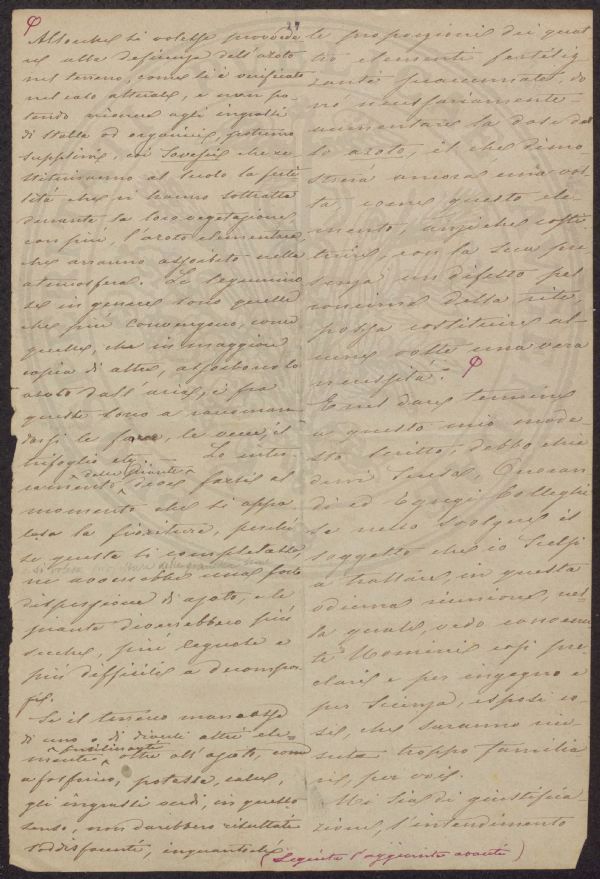 φ
Allorchè si volesse provvede
re alla deficenza dell'azoto
nel terreno, come si è verificato
nel caso attuale, e non po-
tendo ricorre agli ingrassi
di stalla od organici, potremo
supplirvi, coi sovesci che re
stituiranno al suolo la ferti
lità che vi hanno sottratta
durante la loro vegetazione,
con più, l'azoto elementare,
che avranno assorbito nella
atmosfera. Le legumino
se in genere sono quelle
che più convengono, come
quelle, che in maggiore
copia di altre, assorbono lo
azoto dall'aria, e fra
queste sono a raccoman
darsi le fave, le veccie, il
trifoglio etc. Lo inter-
delle piante
ramento deve farsi al
momento che si appa
lesa la fioritura, perchè
se questa si completasse
ne avverrebbe una forte
dispersione di azoto, e le
piante diverrebbero più
secche, più legnose e
più difficili a decompor
si.
Se il terreno mancasse
di uno o di diversi altri ele-
fertilizzanti
menti oltre all'azoto, come
a fosforico, potassa, calce,
gli ingrassi verdi, in questo
senso, non darebbero risultati
soddisfacenti, inquantochè
27
le proporzioni dei quat
tro elementi fertiliz
zanti summentovati, do
vrà necessariamente
aumentare la dose del
lo azoto, il che dimo-
strerà ancora una vol-
ta come questo ele
mento, anzichè costi
tuire, con la sua pre
senza, un difetto pel
concime della vite,
possa costituire al-
cune volte una vera
necessità. φ
E nel dare termine
a questo mio mode-
sto scritto, debbo chie
dervi scusa, Onoran
di ed Egregi Colleghi
se nello svolgere il
soggetto che io scelsi
a trattare, in questa
odierna riunione, nel
la quale, vedo convenu
ti Uomini così pre
clari e per ingegno e
per scienza, esposi co-
se, che saranno ve-
nute troppo familia
ri, per voi.
Mi sia di giustifica-
zione, l'intendimento
(Seguita l'aggiunta avanti)